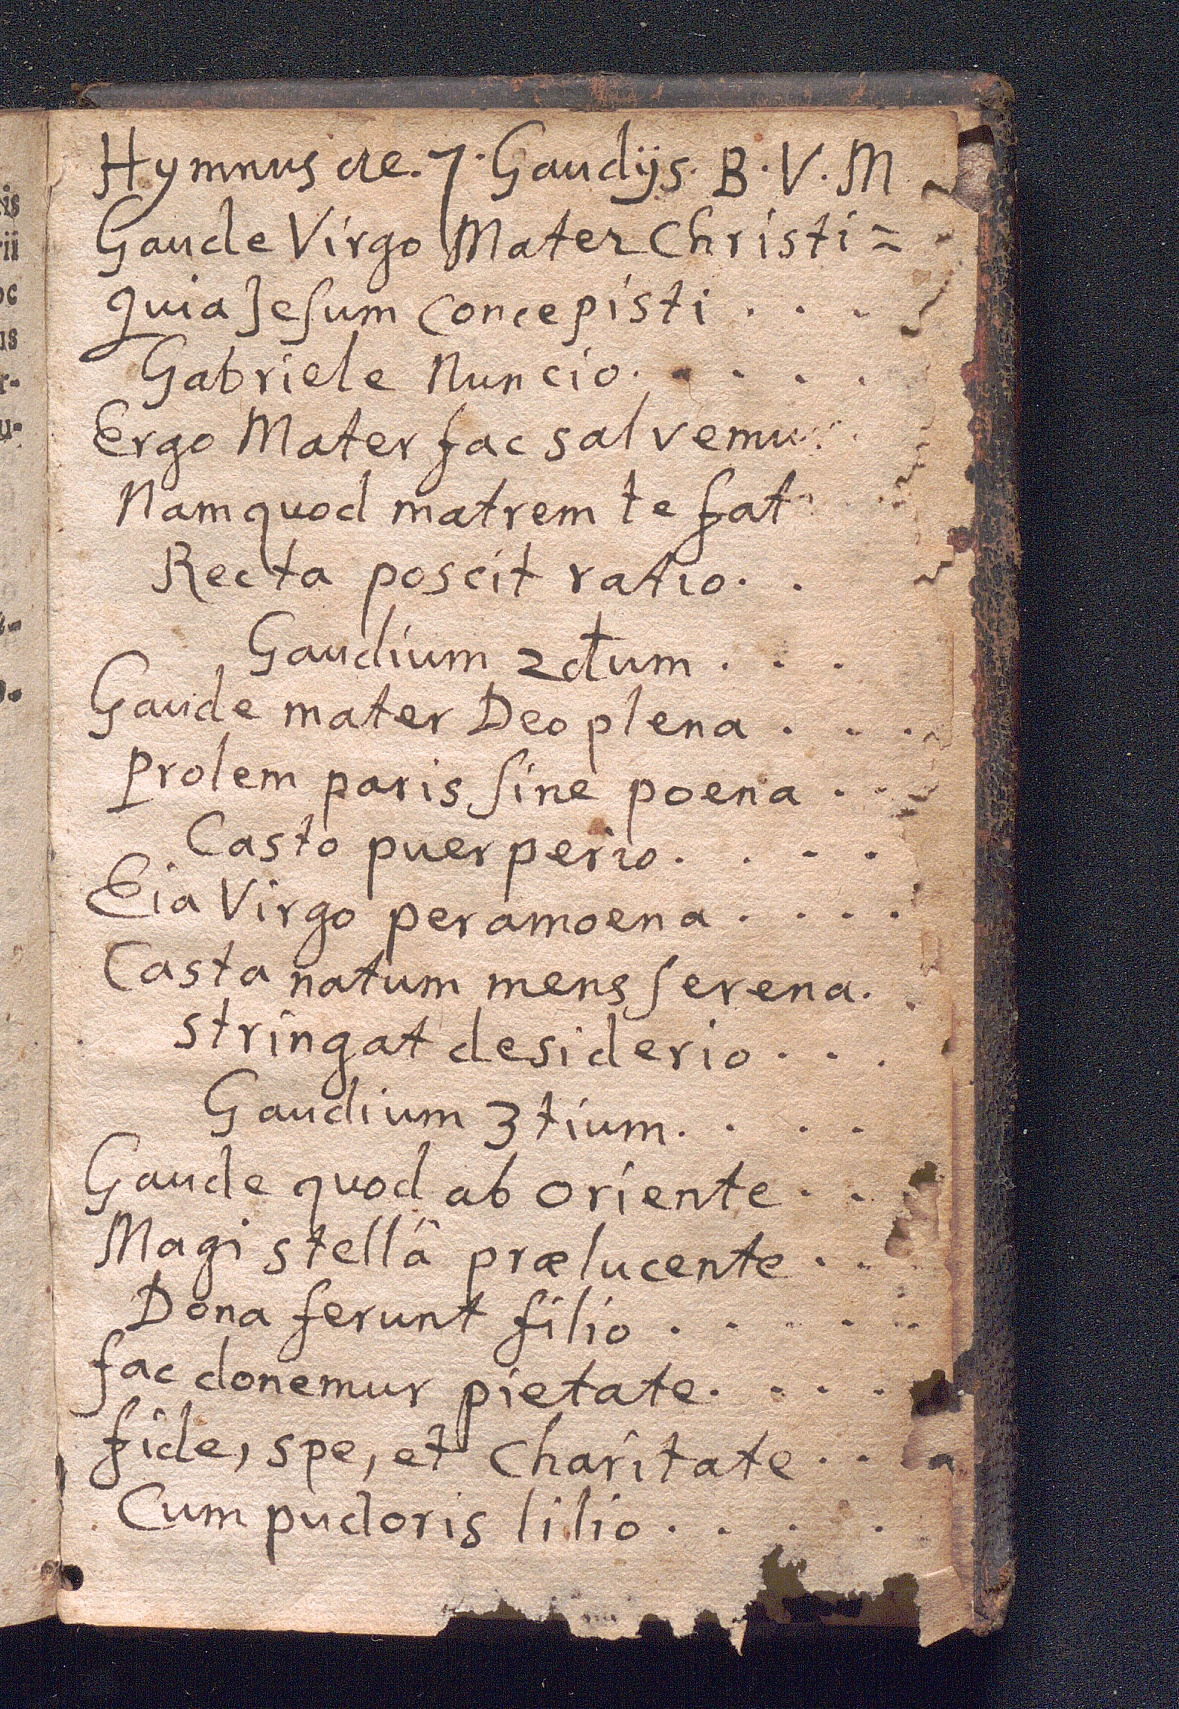 Hymnus de. 7. Gaudijs. B. V. M
Gaude Virgo Mater Christi =
Quia Jesum Concepisti . . .
Gabriele Nuncio. . . . .
Ergo Mater fac salvemu
Nam quod matrem te fat
Recta poscit ratio. .
Gaudium 2dum . . .
Gaude mater Deo plena . . .
Prolem paris ſine poena . .
Casto puerperio. . . .
Eia Virgo peramoena . . . .
Casta natum mens ſerena. .
stringat desiderio . . .
Gaudium 3tium. . . .
Gaude quod ab oriente . .
Magi stellâ prælucente . .
Dona ferunt filio . . . . .
fac donemur pietate. . . .
fide, spe, et Charitate . .
Cum pudoris lilio . . . .
is
rii
oc
us
r-
u-